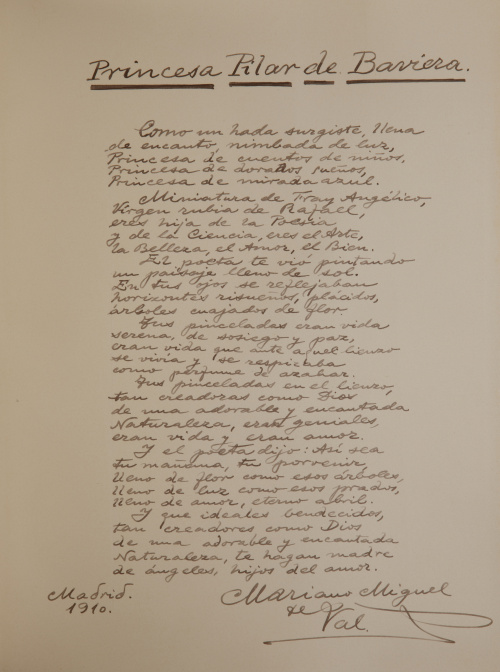 Princesa Pilar de Baviera.
Como un hada surgiste, llena
de encanto, nimbada de luz,
Princesa de cuentos de niños,
Princesa de dorados sueños,
Princesa de mirada azul.
Miniatura de Fray Angélico,
Virgen rubia de Rafael,
eres hija de la Poesía
y de la Ciencia, eres el Arte,
la Belleza, el Amor, el Bien.
El poeta te vió pintando
un paisaje lleno de sol.
En tus ojos se reflejaban
horizontes risueños, plácidos,
árboles cuajados de flor.
Tus pinceladas eran vida
serena, de sosiego y paz,
eran vida que ante aquel lienzo
se vivía y se respiraba
como perfume de azahar.
Tus pinceladas en el lienzo,
tan creadoras como Dios
de una adorable y encantada
Naturaleza, eran geniales,
eran vida y eran amor.
Y el poeta dijo: Así sea
tu mañana, tu porvenir,
lleno de flor como esos árboles,
lleno de luz como esos prados,
lleno de amor, eterno abril.
Y que ideales bendecidos,
tan creadores como Dios
de una adorable y encantada
Naturaleza, te hagan madre
de ángeles, hijos del amor.
Madrid.
1910.
Mariano Miguel
de
Val.